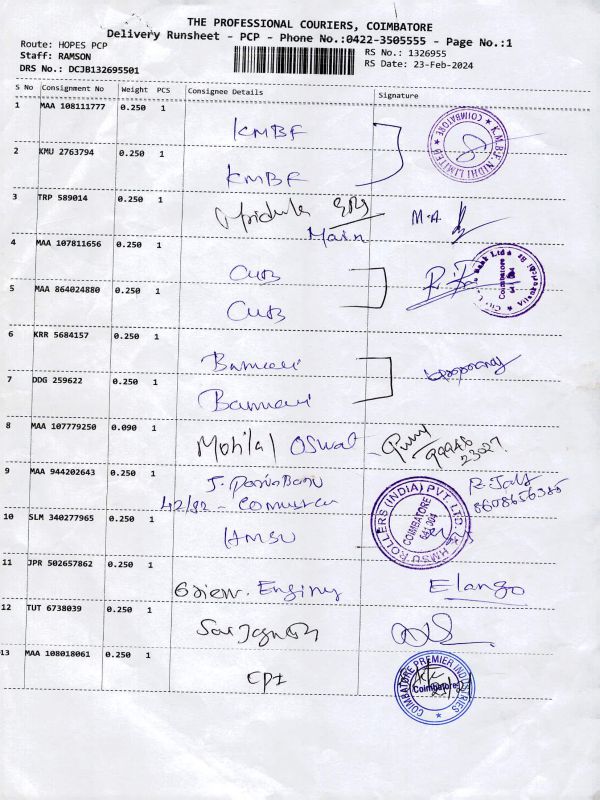 THE PROFESSIONAL COURIERS, COIMBATORE
Delivery Runsheet - PCP - Phone No.:0422-3505555 - Page No.:1
Route: HOPES PCP
Staff: RAMSON
DRS No.: DCJB132695501
RS No.: 1326955
RS Date: 23-Feb-2024
S No Consignment No Weight PCS Consignee Details Signature
1 MAA 108111777 0.250 1 KMBF
K.M.B.F. NIDHI LIMITED ★ COIMBATORE ★
2 KMU 2763794 0.250 1 KMBF
3 TRP 589014 0.250 1 M.A.
Main
4 MAA 107811656 0.250 1 CUB
Coimbatore
5 MAA 864024880 0.250 1 CUB
6 KRR 5684157 0.250 1
7 DDG 259622 0.250 1
8 MAA 107779250 0.090 1 Mohilal Oswal
99946
23027
9 MAA 944202643 0.250 1
8608656385
10 SLM 340277965 0.250 1 HMSU
HMSU ROLLERS (INDIA) PVT. LTD.
COIMBATORE
641 004
11 JPR 502657862 0.250 1 Elango
12 TUT 6738039 0.250 1
13 MAA 108018061 0.250 1 CPI
COIMBATORE PREMIER INDUSTRIES
Coimbatore